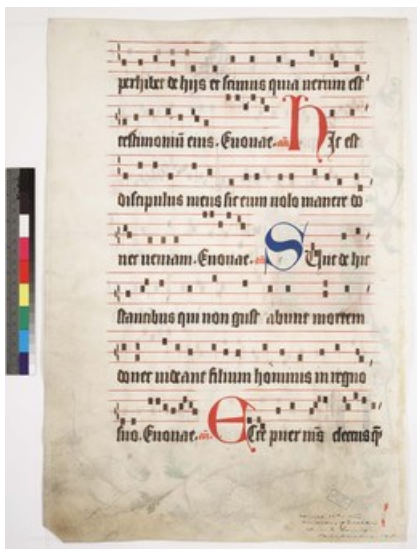 perhibet de hijs et scimus quia uerum est
testimoniū eius. Euouae. añ. Hic est
discipulus meus sic eum uolo manere do
nec ueniam. Euouae. añ. Sunt de hic
stantibus qui non gust abunt mortem
donec uideant filium hominis in regno
suo. Euouae. añ. Ecce puer m̄s electus q̄